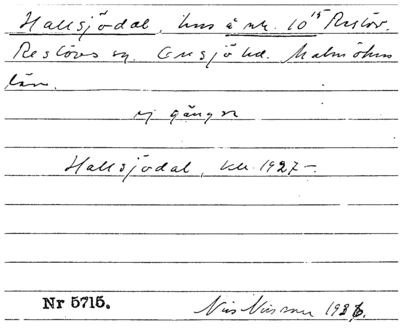 Hallsjödal, hus å nr. 10¹⁵ Reslöv.
Reslövs sn. Onsjö hd. Malmöhus
län.
ej gängse
Hallsjödal, kk. 1927-
Nr 5715.
Nils Nilsson 1986.